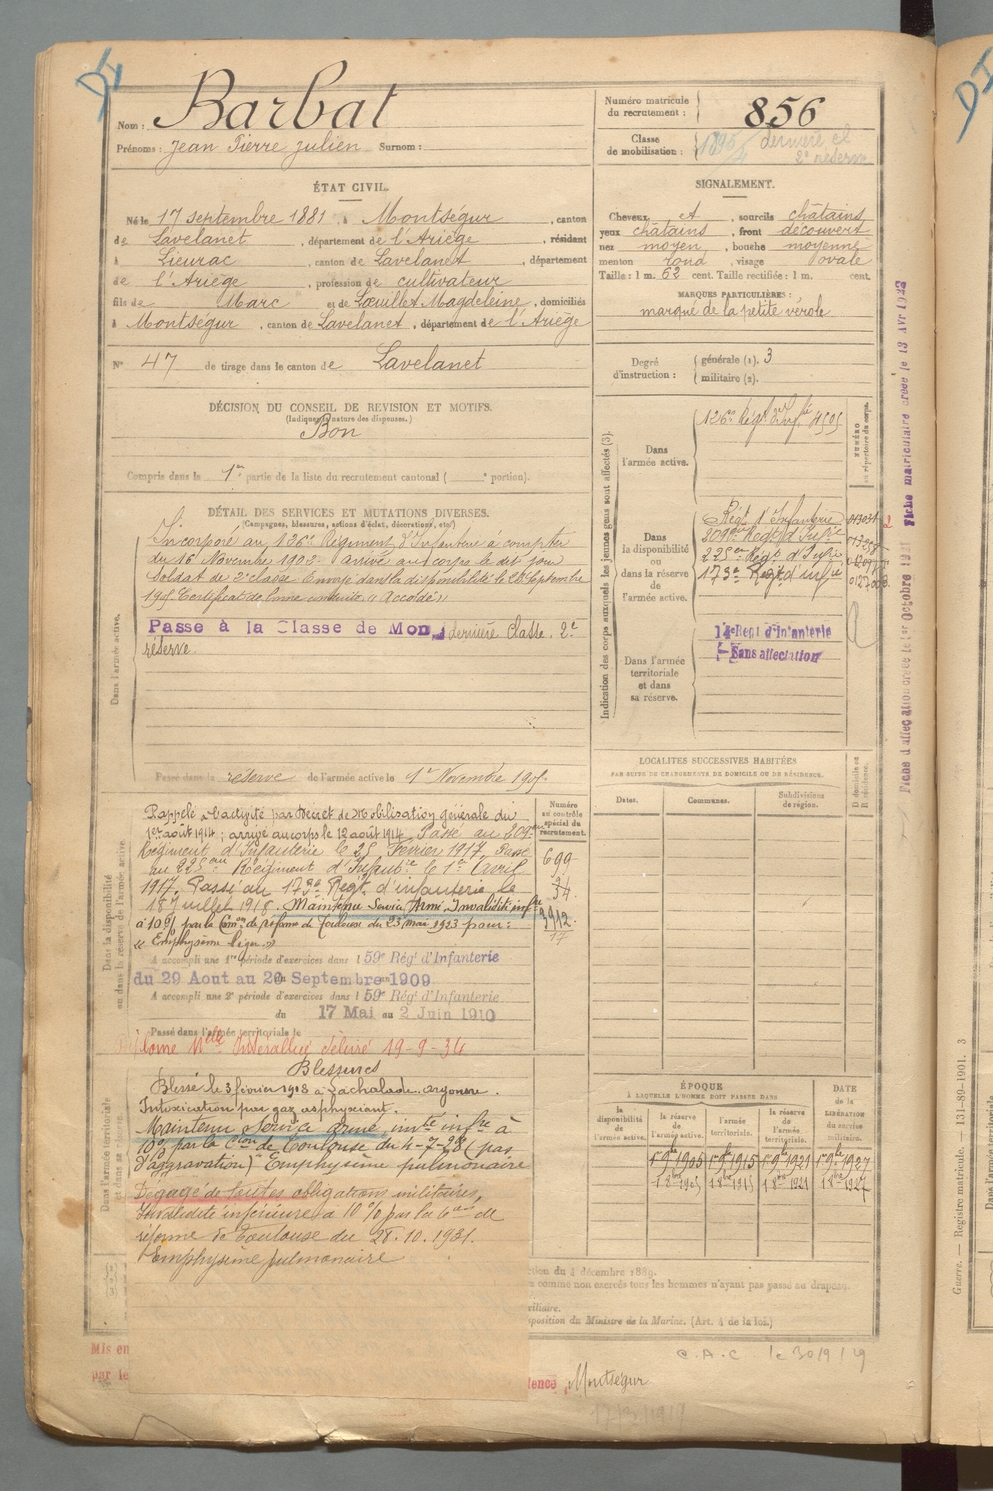 Nom : Barbat
Prénoms : Jean Pierre Julien Surnom :
Numéro matricule du recrutement : 856
Classe de mobilisation : dernière et 2e réserve
ÉTAT CIVIL.
Né le 17 septembre 1881, à Montségur, canton
de Lavelanet, département de l'Ariège, résidant
à Lieurac, canton de Lavelanet, département
de l'Ariège, profession de cultivateur
fils de Marc et de Lœuillet Magdeleine, domiciliés
à Montségur, canton de Lavelanet, département de l'Ariège
N° 47 de tirage dans le canton de Lavelanet
SIGNALEMENT.
Cheveux et, sourcils châtains
yeux châtains, front découvert
nez moyen, bouche moyenne
menton rond, visage ovale
Taille : 1 m. 62 cent. Taille rectifiée : 1 m. cent.
MARQUES PARTICULIÈRES :
marqué de la petite vérole
Degré d'instruction : générale (1). 3
militaire (2).
DÉCISION DU CONSEIL DE REVISION ET MOTIFS.
(Indiquer la nature des dispenses.)
Bon
Compris dans la 1re partie de la liste du recrutement cantonal ( e portion).
DÉTAIL DES SERVICES ET MUTATIONS DIVERSES.
(Campagnes, blessures, actions d'éclat, décorations, etc.)
Dans l'armée active.
Incorporé au 126e Régiment d'Infanterie à compter
du 16 Novembre 1902. arrivé au corps le dit jour
Soldat de 2e classe. Envoyé dans la disponibilité le Septembre
1905 Certificat de bonne conduite "Accordé"
Passé à la Classe de Mob dernière Classe. 2e
réserve.
Passé dans la réserve de l'armée active le 1er Novembre 1905.
Indication des corps auxquels les jeunes gens sont affectés (3).
NUMÉRO au répertoire du corps.
Dans l'armée active.
126e Régt d'Infie 4505
Dans la disponibilité ou dans la réserve de l'armée active.
Régt d'Infanterie
209e Régt d'Infie
225e Régt d'Infie
173e Régt d'infie
Dans l'armée territoriale et dans sa réserve.
14e Regt d'Infanterie
Sans affectation
Fiche matriculaire créée le 13 Avr 1923
Octobre 1921
LOCALITÉS SUCCESSIVES HABITÉES
PAR SUITE DE CHANGEMENTS DE DOMICILE OU DE RÉSIDENCE.
Dates. Communes. Subdivisions de région.
D domicile ou R résidence.
Dans la disponibilité ou dans la réserve de l'armée active.
Numéro au contrôle spécial du recrutement.
Rappelé à l'activité par Décret de Mobilisation générale du
1er août 1914 ; arrivé au corps le 12 août 1914. Passé au 209e
Régiment d'Infanterie le 25 Février 1917. Passé
au 225e Régiment d'Infanterie le 1er Avril
1917. Passé au 173e Régt d'infanterie le
18 Juillet 1918. Maintenu Service Armé, Invalidité infre
à 10% par la Com on de réforme de Toulouse du 23 mai 1923 pour :
« Emphysème léger »
699
34
3912
17
A accompli une 1re période d'exercices dans l 59e Rég d'Infanterie
du 29 Aout au 20 Septembre 1909
A accompli une 2e période d'exercices dans l 59e Rég d'Infanterie
du 17 Mai au 2 Juin 1910
Passé dans l'armée territoriale le
Diplome Mlle Interalliée délivré 19-9-34
Blessures
Blessé le 3 février 1918 à Lachalade. argonne.
Intoxication par gaz asphyxiant.
Maintenu Service armé, invte infre à
10% par la Cion de Toulouse du 4-7-28 (pas
d'aggravation) "Emphysème pulmonaire
Dégagé de toutes obligations militaires,
Invalidité inférieure à 10% par la Con de
réforme de Toulouse du 28.10.1931.
"Emphysème pulmonaire
ÉPOQUE
À LAQUELLE L'HOMME DOIT PASSER DANS
DATE DE LA LIBÉRATION du service militaire.
la disponibilité de l'armée active.
la réserve de l'armée active.
l'armée territoriale.
la réserve de l'armée territoriale.
1 9bre 1905 1 9bre 1915 1 9bre 1921 1 9bre 1927
1 8bre 1905 1 8bre 1915 1 8bre 1921 1 8bre 1927
ction du 4 décembre 1889.
comme non exercés tous les hommes n'ayant pas passé au drapeau.
xiliaire.
position du Ministre de la Marine. (Art. 4 de la loi.)
C.A.C le 30/9/29
Mis en
par le
dence, Montségur
Guerre. — Registre matricule. — 131-89-1901. 3